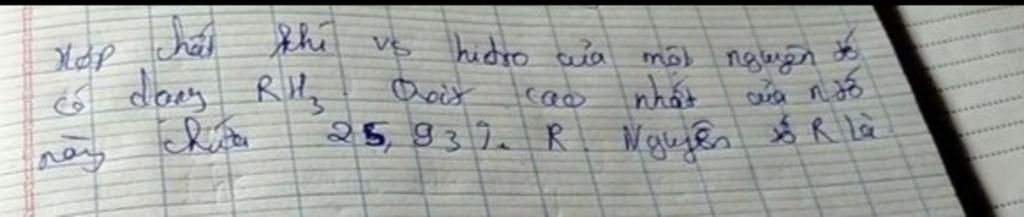 Hợp chất khí vs hidro của một nguyên tố
có dạng RH₃. Oxit cao nhất của n tố
này chứa 25,93%. R. Nguyên tố R là